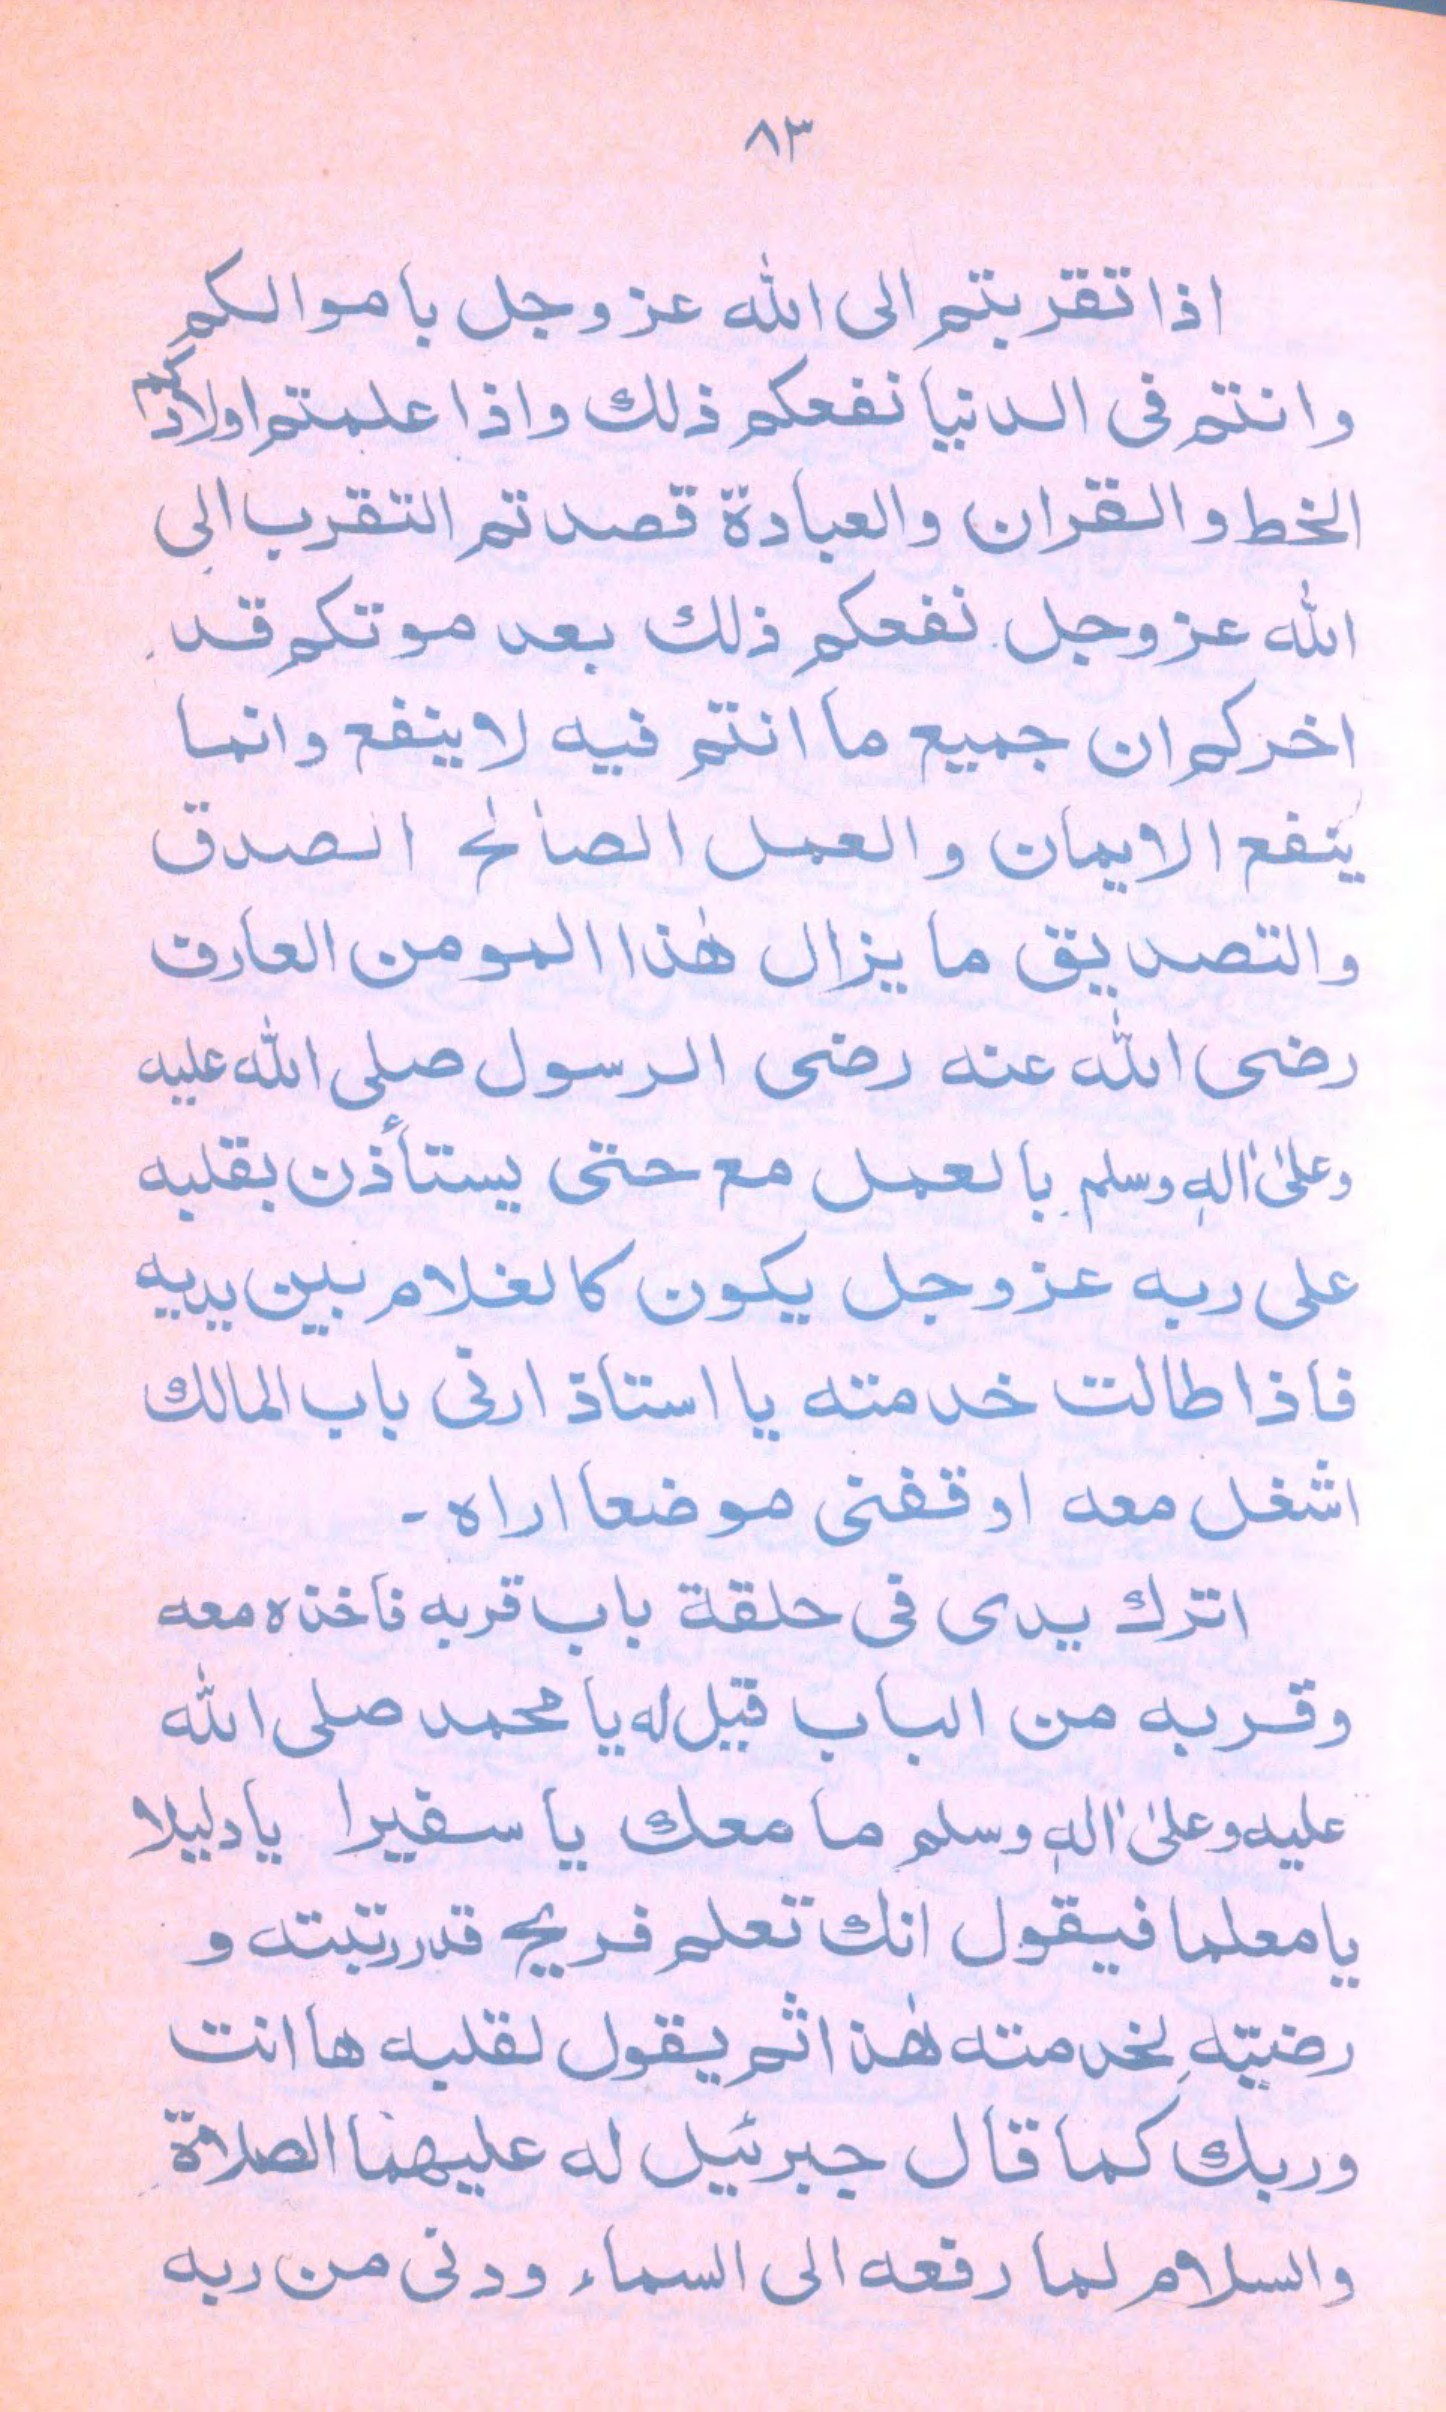 ٨٣
اذا تقربتم الى الله عز وجل باموالكم
وانتم فى الدنيا نفعكم ذلك واذا علمتم اولادكم
الخط والقران والعبادة قصدتم التقرب الى
الله عز وجل نفعكم ذلك بعد موتكم قد
اخركم ان جميع ما انتم فيه لا ينفع وانما
ينفع الايمان والعمل الصالح الصدق
والتصديق ما يزال هٰذا المومن العارف
رضى الله عنه رضى الرسول صلى الله عليه
وعلىٰ اٰلهٖ وسلم بالعمل مع حتى يستأذن بقلبه
على ربه عز وجل يكون كالغلام بين يديه
فاذا طالت خدمته يا استاذ ارنى باب المالك
اشغل معه اوقفنى موضعا اراه -
اترك يدى فى حلقة باب قربه فاخذه معه
وقربه من الباب قيل له يا محمد صلى الله
عليه وعلىٰ اٰلهٖ وسلم ما معك يا سفيرا يا دليلا
يا معلما فيقول انك تعلم فريح قدرربته و
رضيّته لخدمته هٰذا ثم يقول لقلبه ها انت
وربك كما قال جبرئيل له عليهما الصلاة
والسلام لما رفعه الى السماء ودنى من ربه